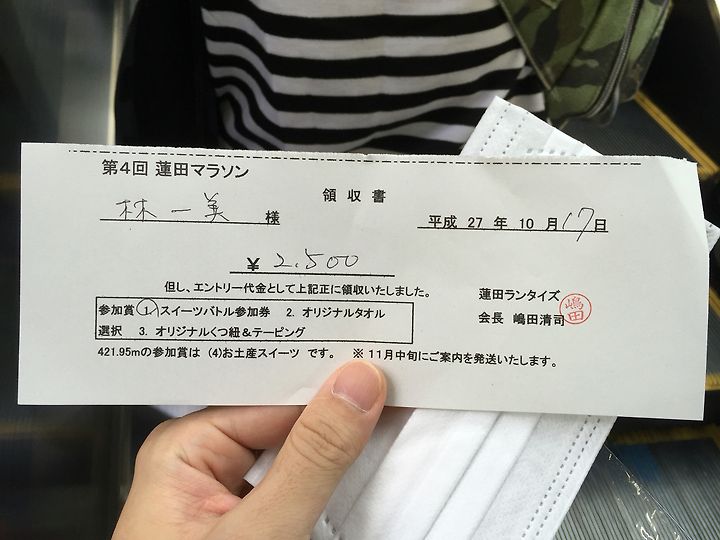 第4回 蓮田マラソン
領収書
林 一美 様
平成 27 年 10 月 17日
¥ 2,500
但し、エントリー代金として上記正に領収いたしました。
蓮田ランタイズ
会長 嶋田清司
嶋田
参加賞 1. スイーツバトル参加券 2. オリジナルタオル
選択 3. オリジナルくつ紐&テーピング
421.95mの参加賞は (4)お土産スイーツ です。 ※ 11月中旬にご案内を発送いたします。